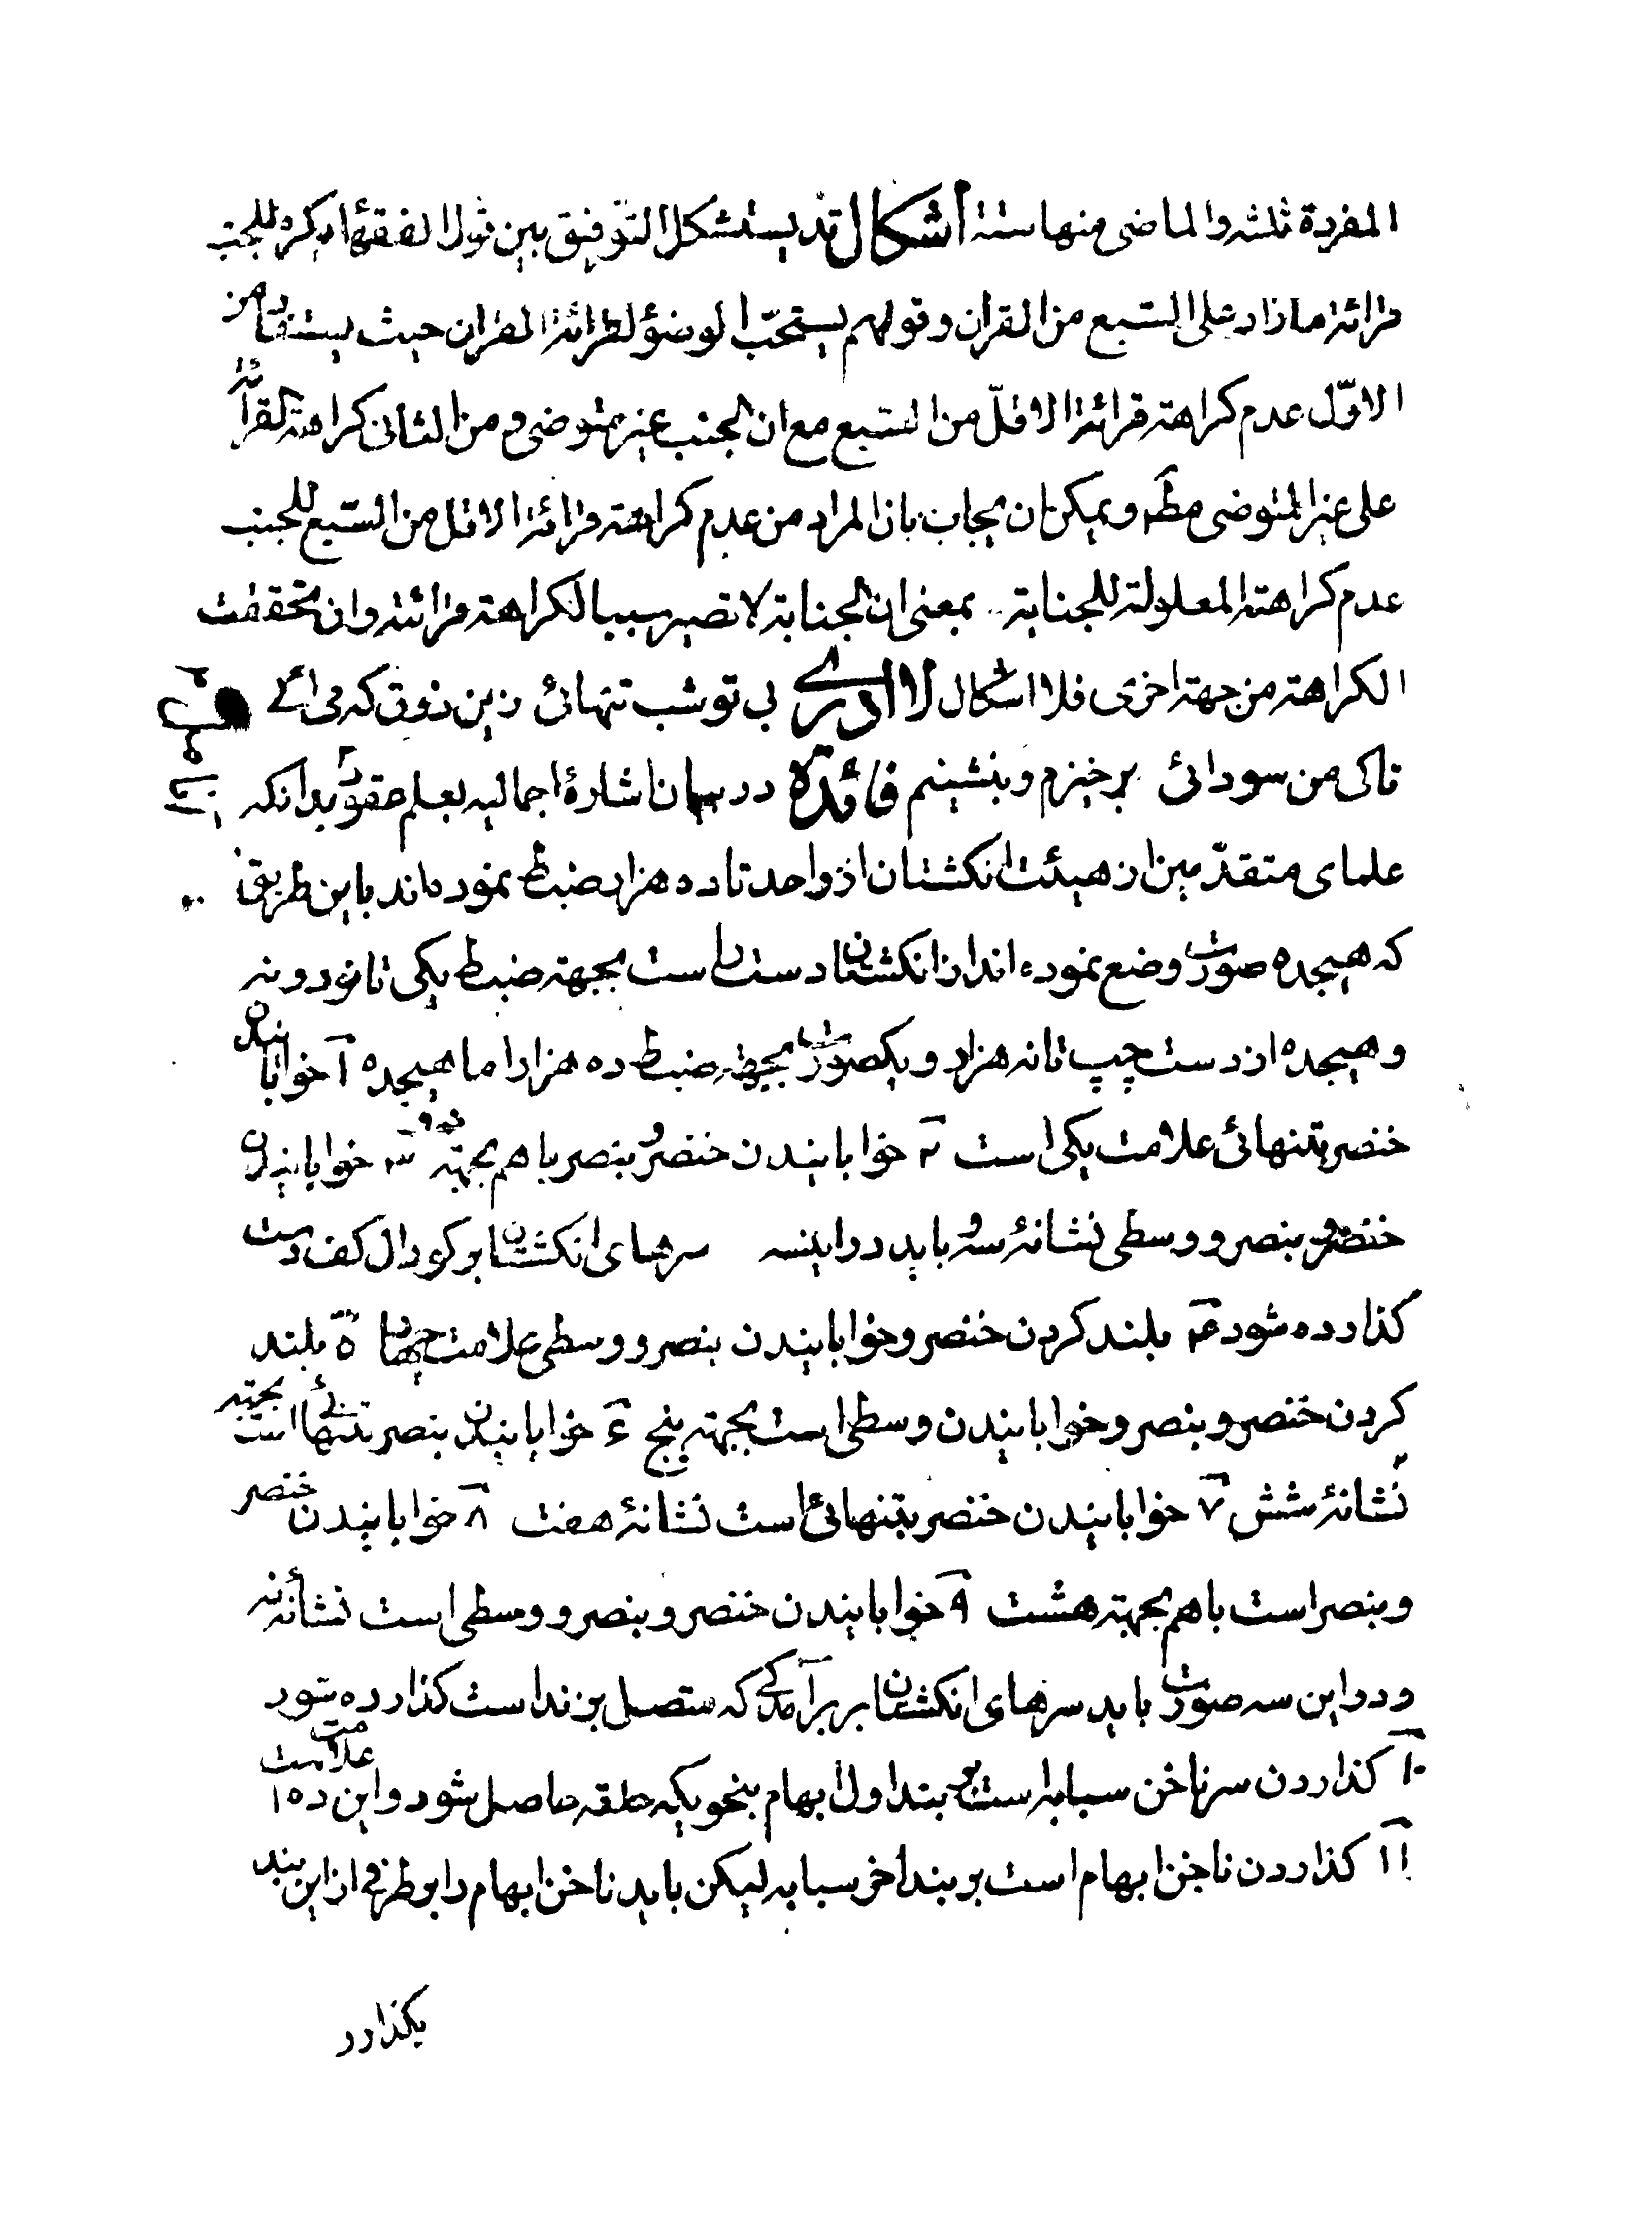 المفردة ثلثه والماضی منها ستة اشکال قد یستشکل التوفیق بین قول الفقهاء یکره للجنب
قرائة ما زاد علی السبع من القران وقولهم یستحبّ الوضوُ لقرائة القران حیث یستفاد من
الاوّل عدم کراهة قرائة الاقلّ من السبع مع ان الجنب غیر متوضی ومن الثانی کراهة القرائة
علی غیر المتوضی مطم ویمکن ان یجاب بان المراد من عدم کراهة قرائة الاقل من السّبع للجنب
عدم کراهته المعلولة للجنابة بمعنی ان الجنابة لا تصیر سببا لکراهة قرائته وان تحققت
الکراهة من جهة اخری فلا اشکال لا ادری بی تو شب تنهائی زین ذوق که می ائی
تا کی من سودائی برخیزم وبنشینم فائدة در بیان اشارهٔ اجمالیه بعلم عقود بدانکه
علمای متقدّمین از هیئت انکشتان از واحد تا ده هزار ضبط نموده اند باین طریق
که هیجده صورت وضع نموده اند از انکشتان دست راست بجهة ضبط یکی تا نود و نه
وهیجده از دست چپ تا نه هزار ویکصورت بجهة ضبط ده هزار اما هیجده ۱ خوابانیدن
خنصر بتنهائی علامت یکی است ۲ خوابانیدن خنصر وبنصر با هم بجهة دو ۳ خوابانیدن
خنصر وبنصر ووسطی نشانهٔ سه و باید در اینسه سرهای انکشتان بر کودال کف دست
کذارده شود ۴ بلند کردن خنصر وخوابانیدن بنصر ووسطی علامت چهار ۵ بلند
کردن خنصر وبنصر وخوابانیدن وسطی است بجهة پنج ۶ خوابانیدن بنصر تنهائی است بجهة
نشانهٔ شش ۷ خوابانیدن خنصر بتنهائی است نشانهٔ هفت ۸ خوابانیدن خنصر
وبنصر است با هم بجهة هشت ۹ خوابانیدن خنصر وبنصر ووسطی است نشانهٔ نه
ودر این سه صورت باید سرهای انکشتان بر برآمدکی که متصل بزند است کذارده شود
۱۰ کذاردن سر ناخن سبابه است بر بند اول ابهام بنحویکه حلقه حاصل شود واین علامت ده است
۱۱ کذاردن ناخن ابهام است بر بند اخر سبابه لیکن باید ناخن ابهام را بر طرفی از این بند
بکذارد